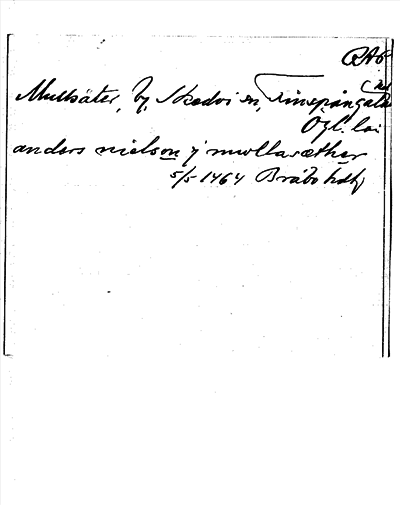 RAp
Mullsäter, by, Skedvi sn, Finspångaläns
Ögl. län
anders nielson j mullasæther
5/5 1464 Bråbo hdbr